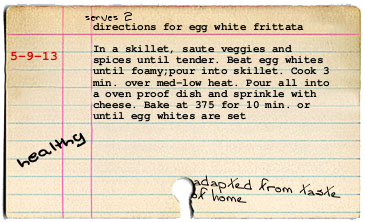 serves 2
directions for egg white frittata
5-9-13
In a skillet, saute veggies and
spices until tender. Beat egg whites
until foamy;pour into skillet. Cook 3
min. over med-low heat. Pour all into
a oven proof dish and sprinkle with
cheese. Bake at 375 for 10 min. or
until egg whites are set
healthy
adapted from taste
of home